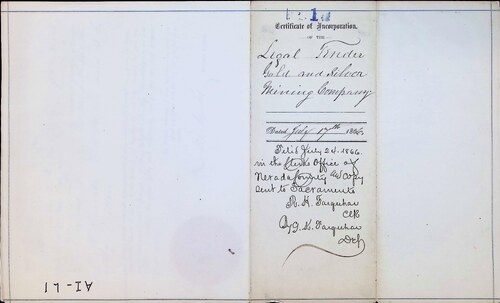 1
Certificate of Incorporation.
OF THE
Legal Tender
Gold and Silver
Mining Company
Dated July 17th 1866
Filed July 24. 1866.
in the Clerks Office of
Nevada County & Copy
sent to Sacramento
R. H. Farquhar
Clk
By J. K. Farquhar
Dep
AI-L1